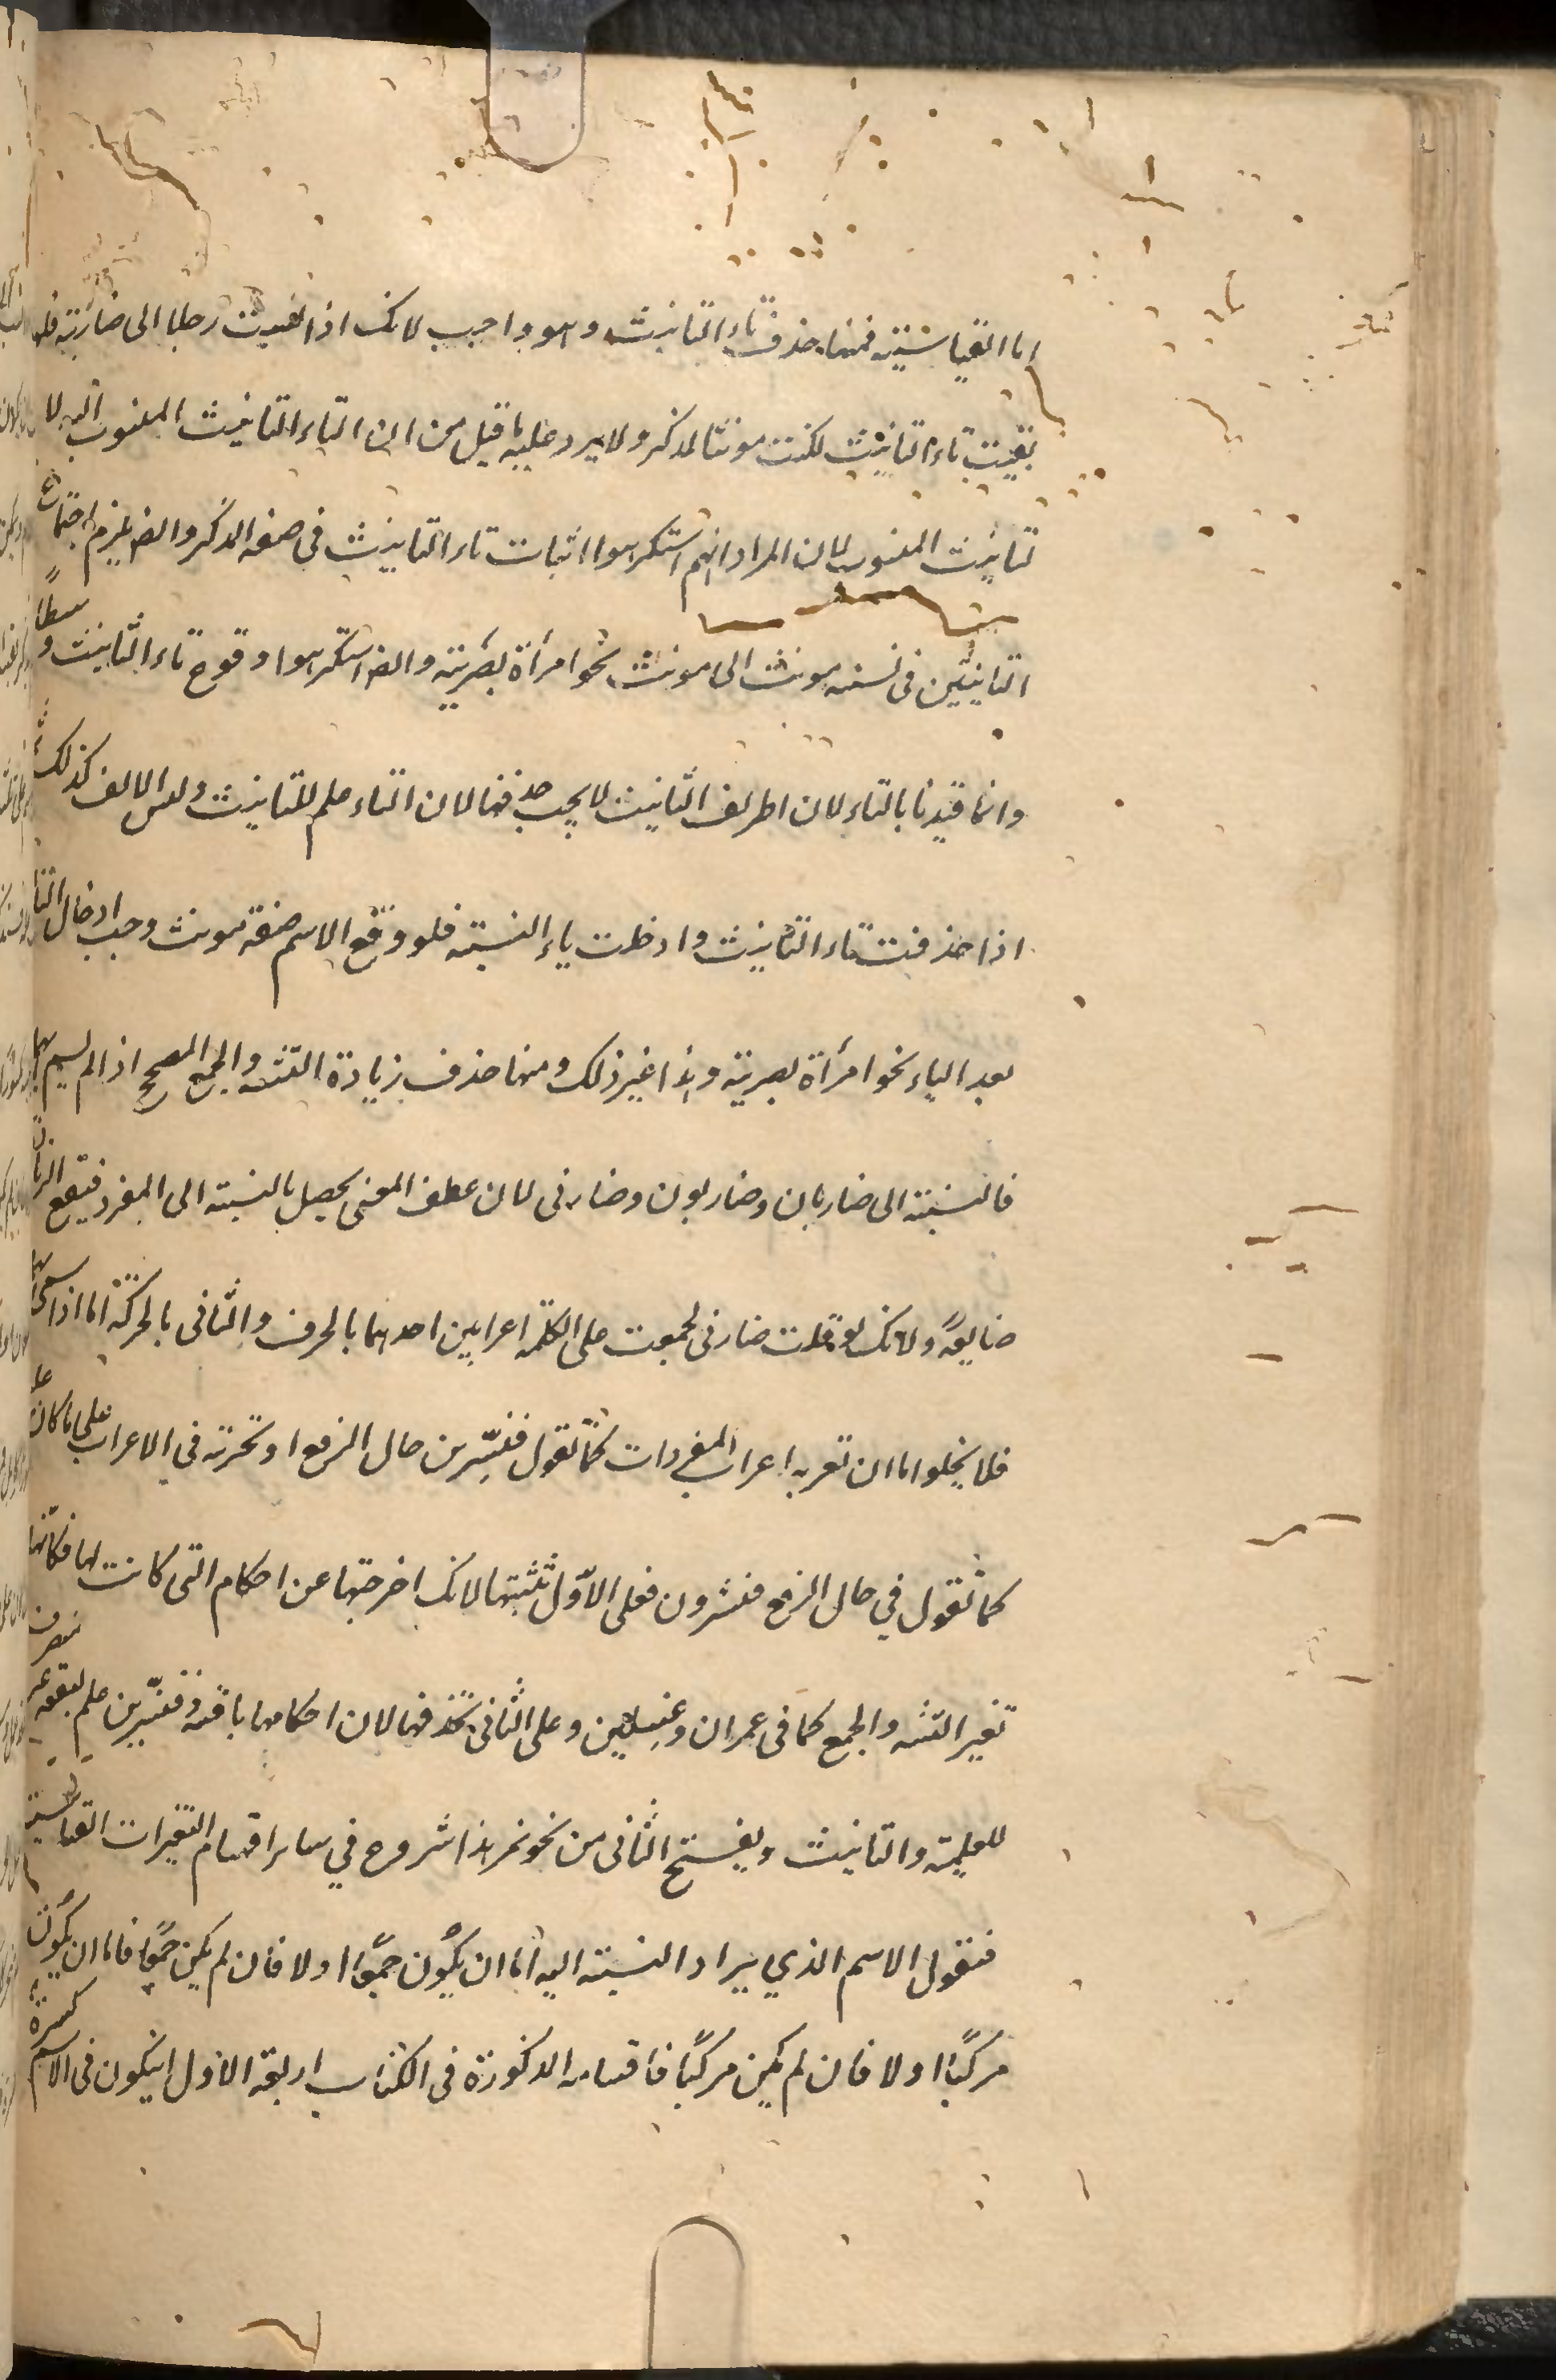 اما القياسيّة فمنها حذف تاء التانيث وهو واجب لانك اذا نسبت رجلا الى ضاربة فلو
بقيت تاء التانيث لكنت مونثا لمذكر ولا يرد عليه ما قيل من ان التاء التانيث المنسوب اليه لا
تانيث المنسوب لان المراد انهم استكرهوا اثبات تاء التانيث في صفة المذكر وايضا يلزم اجتماع
التانيثين في نسبة مونث الى مونث نحو امرأة بصرتية وايضا استكرهوا وقوع تاء التانيث وسطًا
وانما قيدنا بالتاء لان الف التانيث لا يجب حذفها لان التاء علم للتانيث وليس الالف كذلك
اذا حذفت تاء التانيث وادخلت ياء النسبة فلو وقع الاسم صفة مونث وجب ادخال التاء
بعد الياء نحو امرأة بصرية وهذا غير ذلك ومنها حذف زيادة التثنية والجمع المصحح اذا لم يسم بهما
فالنسبة الى ضاربان وضاربون وضاربى لان المعنى يحصل بالنسبة الى المفرد فيقع الزائد
ضايعًا ولانك لو قلت ضاربى لجمعت على الكلمة اعرابين احدهما بالحرف والثانى بالحركة اما اذا سمى بهما
فلا يخلوا اما ان تعربه اعراب المفردات كما تقول قنسّرين حال الرفع او تجريه في الاعراب على ما كان عليه
كما تقول في حال الرفع قنسّرون فعلى الاوّل تثبتها لانك اخرجتها عن احكام التى كانت لها فكانها
تغير التثنية والجمع كما فى عمران وغسلين وعلى الثانى تحذفها لان احكامها باقية وقنسّرين علم لبقعة غير منصرف
للعلمية والتانيث ويفتح الثانى من نحو نمر هذا شروع في ساير اقسام التغيرات القياسية
فنقول الاسم الذي يراد النسبة اليه اما ان يكون جمعًا اولا فان لم يكن جمعًا فاما ان يكون
مركبًا اولا فان لم يكن مركبًا فاقسامه المذكورة في الكتاب اربعة الاول ان يكون في الاسم كسرة